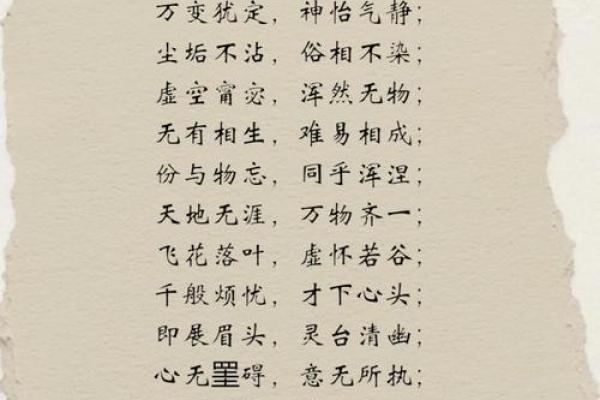 万变犹定，神怡气静；
尘垢不沾，俗相不染；
虚空甯宓，浑然无物；
无有相生，难易相成；
份与物忘，同乎浑涅；
天地无涯，万物齐一；
飞花落叶，虚怀若谷；
千般烦忧，才下心头；
即展眉头，灵台清幽；
心无罣碍，意无所执；